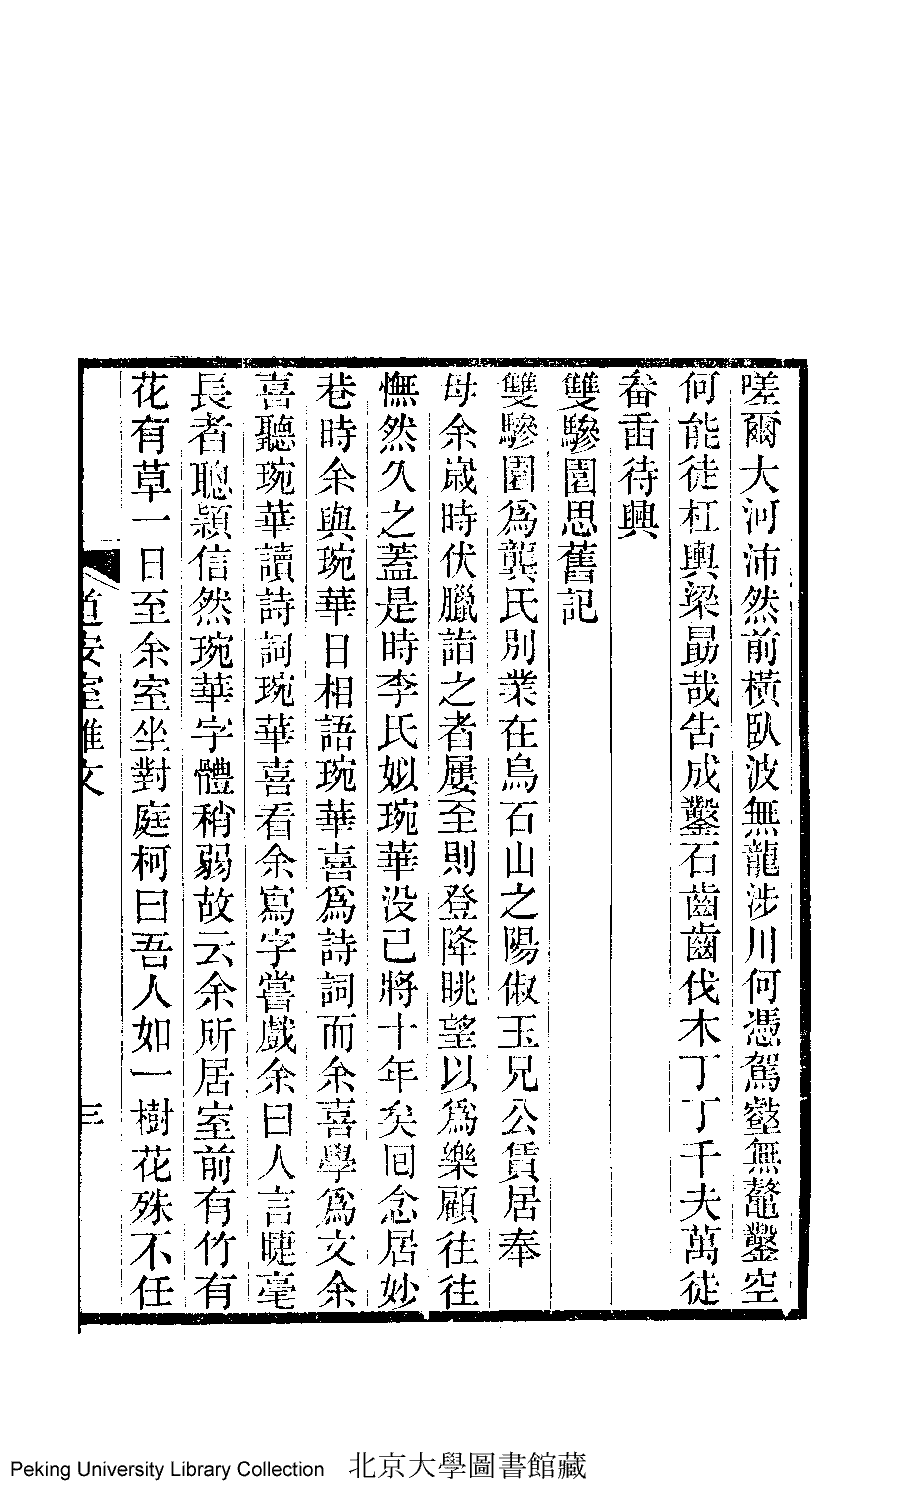 嗟爾大河沛然前橫臥波無龍涉川何憑駕壑無鼇鑿空
何能徒杠輿梁勗哉告成鑿石齒齒伐木丁丁千夫萬徒
畚臿待興
雙驂園思舊記
雙驂園爲龔氏別業在烏石山之陽俶玉兄公賃居奉
母余歲時伏臘詣之者屢至則登降眺望以爲樂顧往往
憮然久之蓋是時李氏姒琬華没已將十年矣囘念居妙
巷時余與琬華日相語琬華喜爲詩詞而余喜學爲文余
喜聽琬華讀詩詞琬華喜看余寫字嘗戲余曰人言睫毫
長者聰穎信然琬華字體稍弱故云余所居室前有竹有
花有草一日至余室坐對庭柯曰吾人如一樹花殊不任
道安室雜文
三
Peking University Library Collection 北京大學圖書館藏